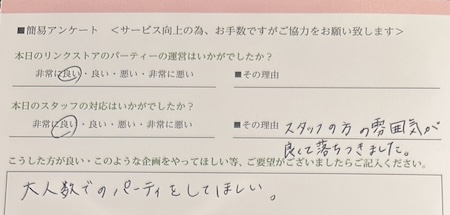 ■簡易アンケート ＜サービス向上の為、お手数ですがご協力をお願い致します＞
本日のリンクストアのパーティーの運営はいかがでしたか？
非常に良い・良い・悪い・非常に悪い ■その理由
本日のスタッフの対応はいかがでしたか？
非常に良い・良い・悪い・非常に悪い ■その理由 スタッフの方の雰囲気が
良くて落ちつきました。
こうした方が良い・このような企画をやってほしい等、ご要望がございましたらご記入ください。
大人数でのパーティをしてほしい。